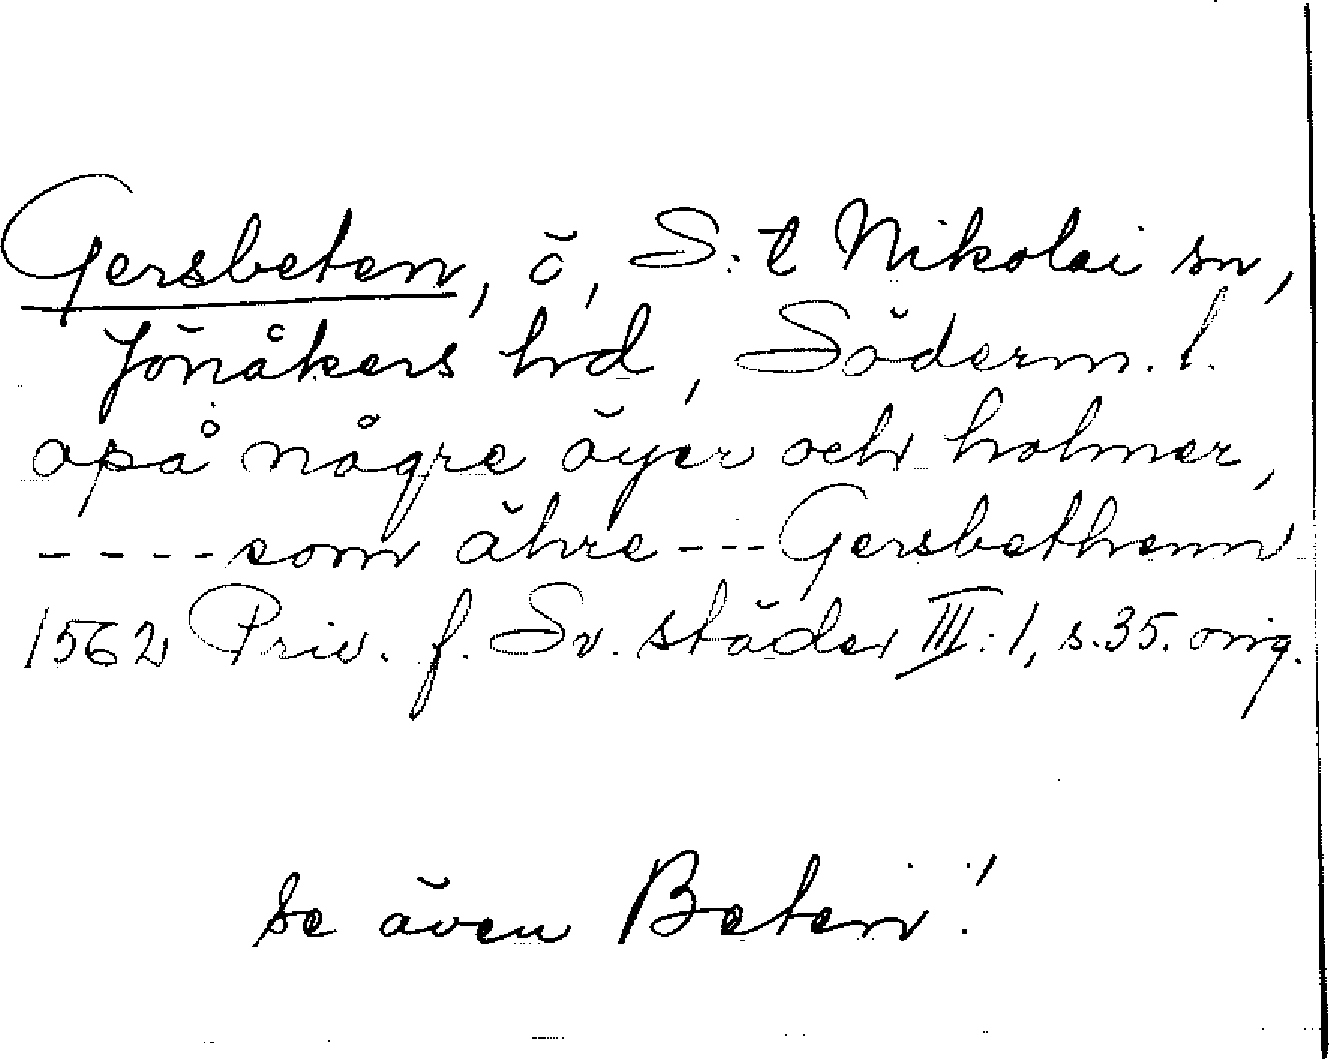 Gersbeten, ö, S:t Nikolai sn,
Jönåkers hd, Söderm. l.
opå någre öyer och holmer,
----som ähre---Gersbethenn
1562 Priv. f. Sv. städer III:1, s.35. orig.
Se även Beten!